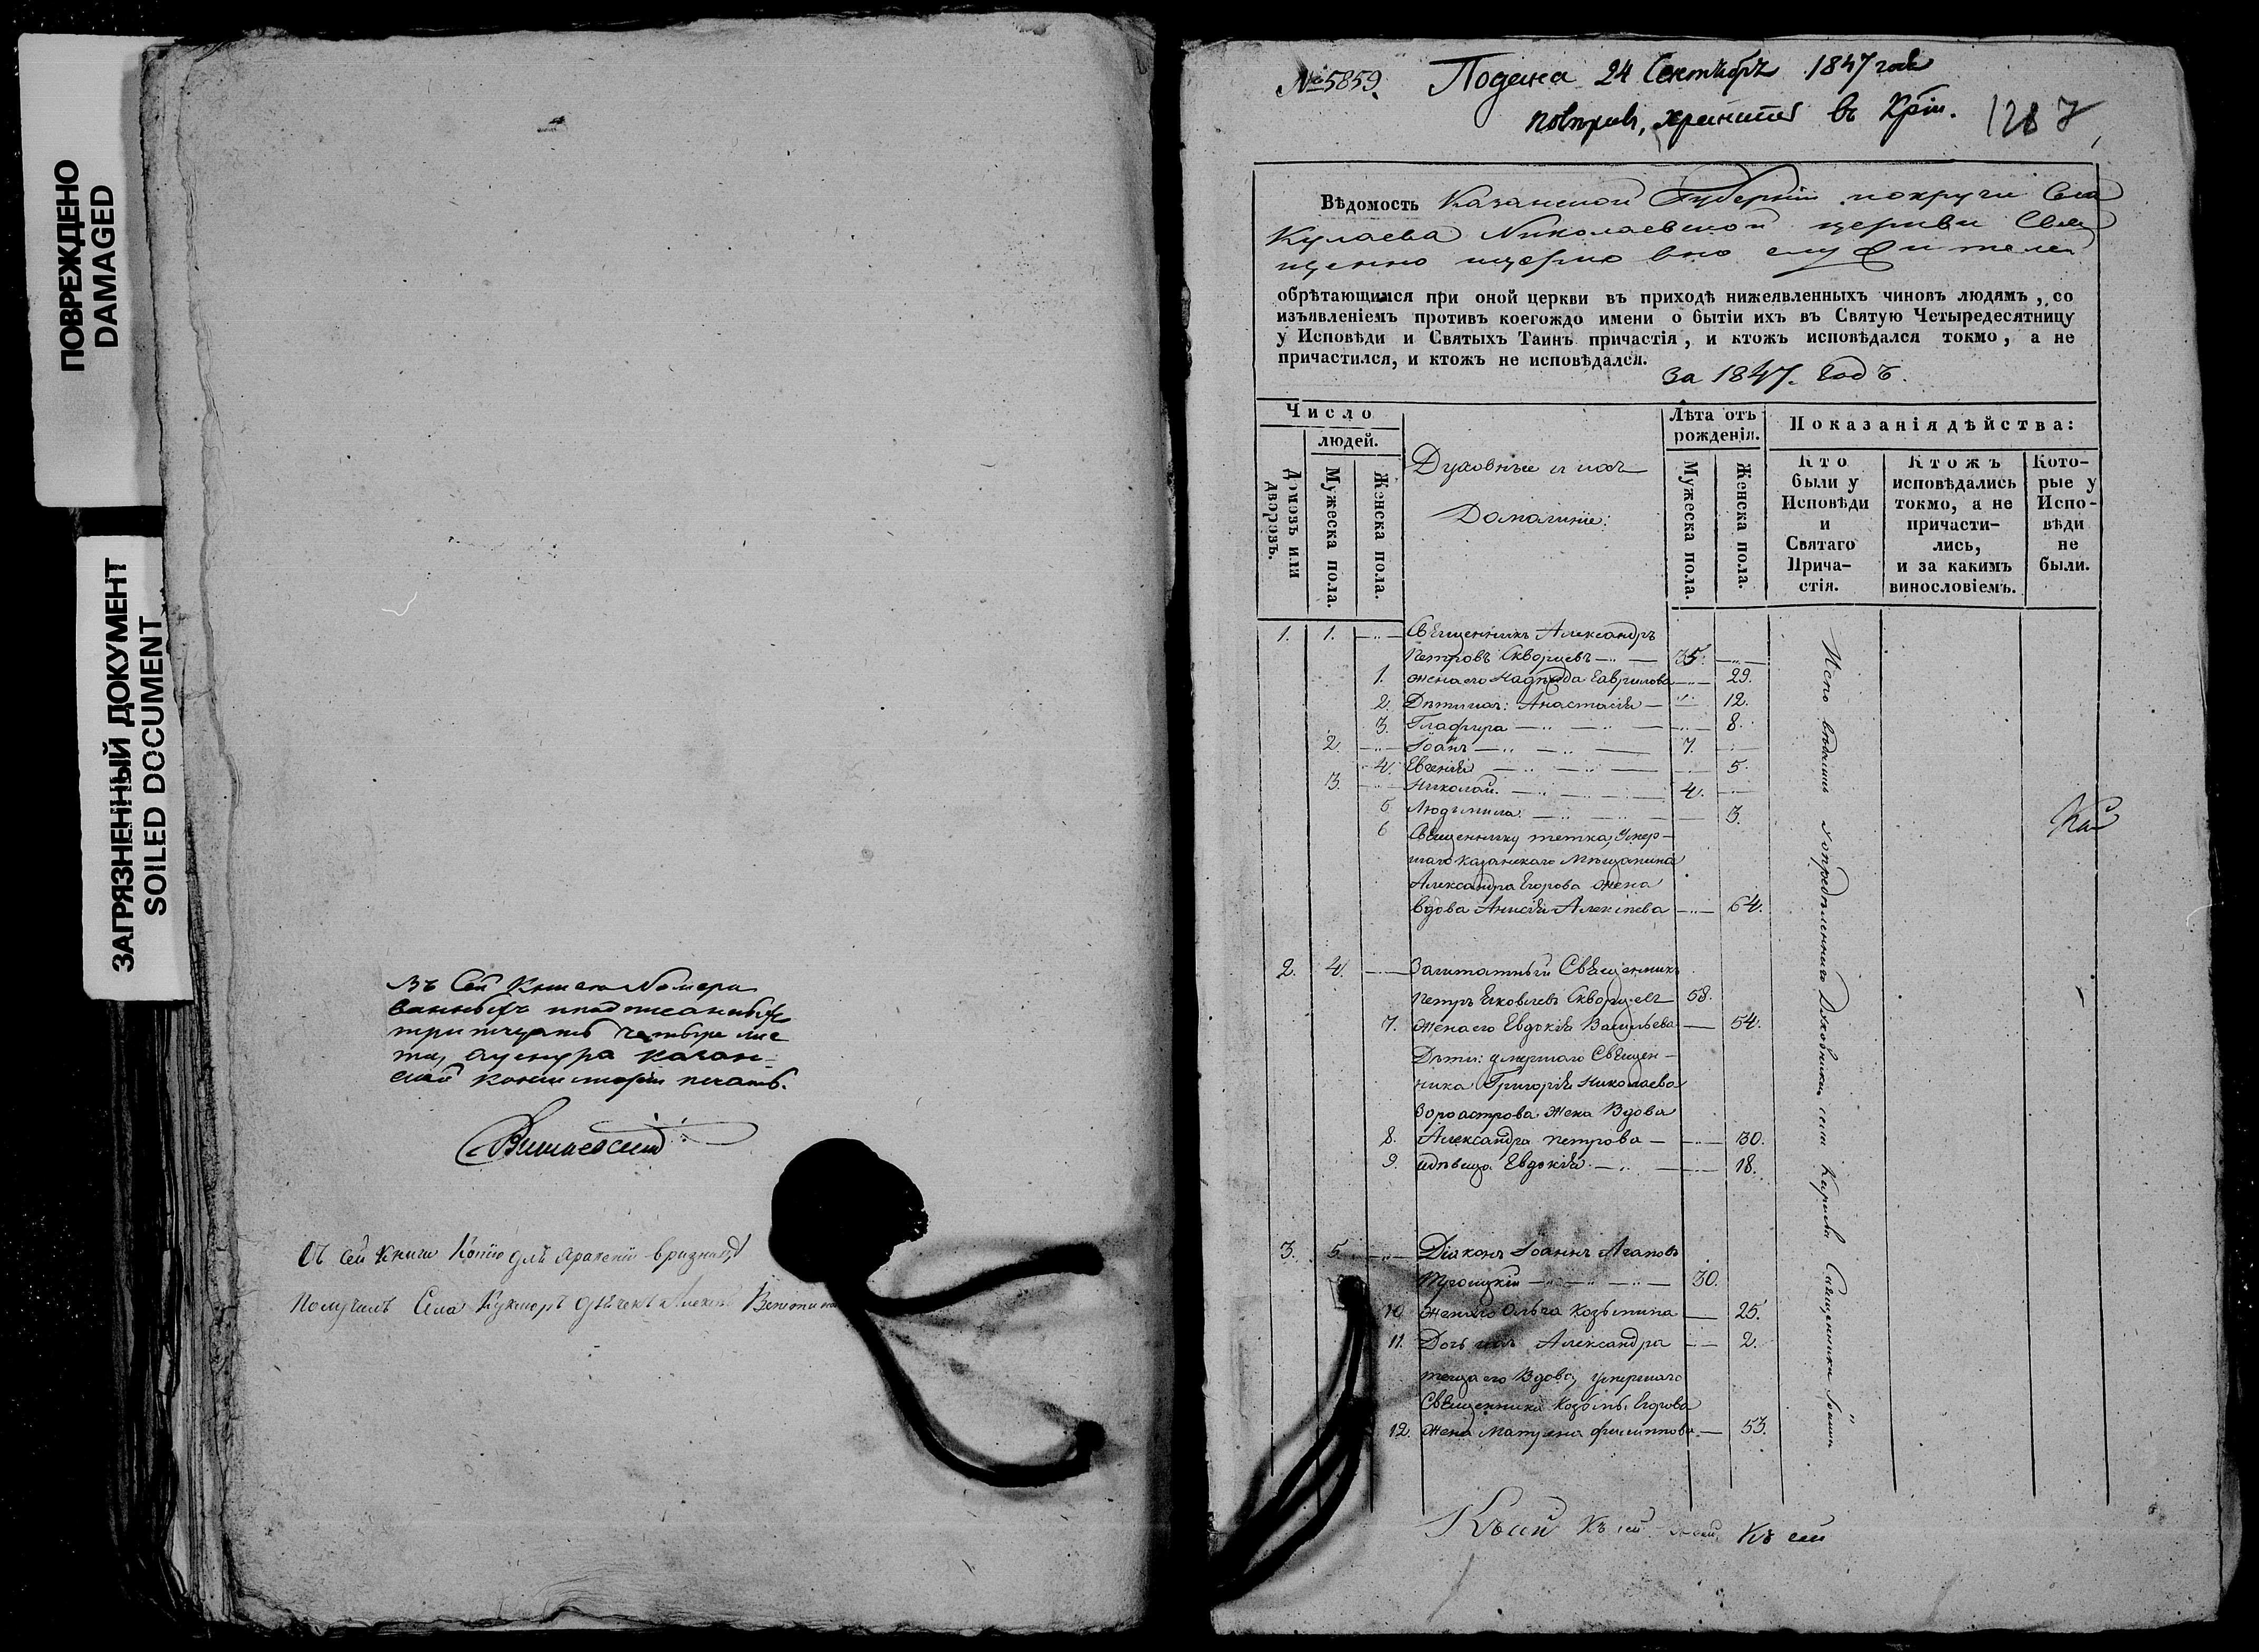 ПОВРЕЖДЕНО
DAMAGED
ЗАГРЯЗНЕННЫЙ ДОКУМЕНТ
SOILED DOCUMENT
Въ сей книге номеро
ванныхъ и подписанныхъ
тритцать четыре лис
та,
консисторіи печать.
Съ сей книги копію для храненія в ризницѣ
Получилъ Села Кукморъ
№ 5859. Подана 24 Сентября 1847 года
хранить въ
Вѣдомость Казанской Губерніи Села
Кулаева Николаевской церкви Свя
щенно церковно служителей
обрѣтающимся при оной церкви въ приходѣ нижеявленныхъ чиновъ людямъ, со
изъявленіемъ противъ коегождо имени о бытіи ихъ въ Святую Четыредесятницу
у Исповѣди и Святыхъ Таинъ причастія, и ктожъ исповѣдался токмо, а не
причастился, и ктожъ не исповѣдался.
За 1847. Годъ.
Число
людей.
Домовъ или дворовъ.
Мужеска пола.
Женска пола.
Духовные и ихъ
Домашніе:
Лѣта отъ рожденія.
Мужеска пола.
Женска пола.
Показанія дѣйства:
Кто были у Исповѣди и Святаго Причастія.
Ктожъ исповѣдались токмо, а не причастились, и за какимъ винословіемъ.
Которые у Исповѣди не были.
1. 1. Священникъ Александръ
Петровъ Скворцевъ 35.
1. жена его Надежда Гаврилова 29.
2. Дѣти ихъ: Анастасія 12.
3. Глафира 8.
2. Іоанъ 7.
4. Евгенія 5.
3. Николай. 4.
5 Людмила 3.
6 Священнику тетка, Умер-
шаго Казанскаго Мѣщанина
Александра Егорова жена
вдова Анисія Алексіева 64.
2. 4. Заштатный Священникъ
Петръ Яковлевъ Скворцевъ 58.
7. Жена его Евдокія Васильева 54.
Дѣти: умершаго Священ-
ника Григорія Николаева
Зороастрова жена Вдова
8. Александра Петрова 30.
9. дѣвица Евдокія 18.
3. 5. Діаконъ Іоаннъ Агаповъ
Троицкій 30.
10 Жена его Ольга Козьмина 25.
11. Дочь ихъ Александра 2.
теща его Вдова, умершаго
Священника Козьмы Егорова
12. Жена Матрена Филиппова 53.
Духовника села Священника Іоанна
Къ сей Къ сей Къ сей